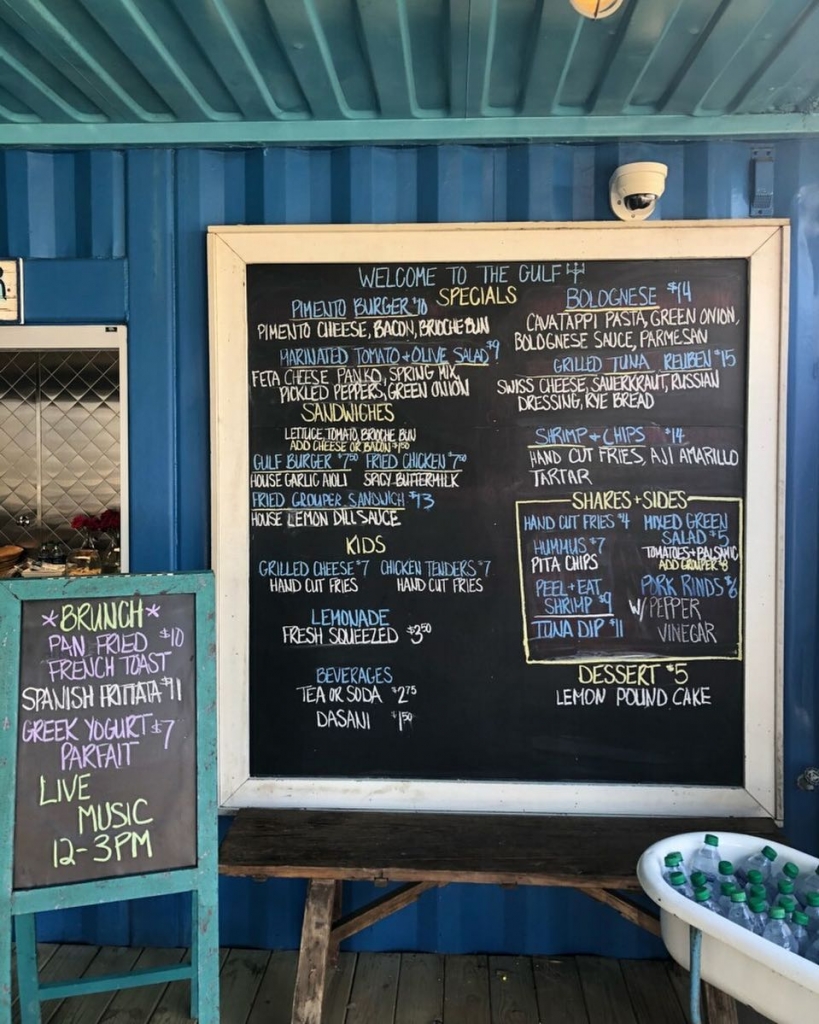 WELCOME TO THE GULF
SPECIALS
PIMENTO BURGER $10
PIMENTO CHEESE, BACON, BRIOCHE BUN
MARINATED TOMATO + OLIVE SALAD $9
FETA CHEESE PANKO, SPRING MIX,
PICKLED PEPPERS, GREEN ONION
SANDWICHES
LETTUCE, TOMATO, BRIOCHE BUN
ADD CHEESE OR BACON $1.50
GULF BURGER $7.50 FRIED CHICKEN $7.50
HOUSE GARLIC AIOLI SPICY BUTTERMILK
FRIED GROUPER SANDWICH $13
HOUSE LEMON DILL SAUCE
KIDS
GRILLED CHEESE $7 CHICKEN TENDERS $7
HAND CUT FRIES HAND CUT FRIES
LEMONADE
FRESH SQUEEZED $3.50
BEVERAGES
TEA OR SODA $2.75
DASANI $1.50
BOLOGNESE $14
CAVATAPPI PASTA, GREEN ONION,
BOLOGNESE SAUCE, PARMESAN
GRILLED TUNA REUBEN $15
SWISS CHEESE, SAUERKRAUT, RUSSIAN
DRESSING, RYE BREAD
SHRIMP + CHIPS $14
HAND CUT FRIES, AJI AMARILLO
TARTAR
SHARES + SIDES
HAND CUT FRIES $4
HUMMUS $7
PITA CHIPS
PEEL + EAT
SHRIMP $9
TUNA DIP $11
MIXED GREEN
SALAD $5
TOMATOES + BALSAMIC
ADD GROUPER $8
PORK RINDS $6
W/ PEPPER
VINEGAR
DESSERT $5
LEMON POUND CAKE
*BRUNCH*
PAN FRIED $10
FRENCH TOAST
SPANISH FRITTATA $11
GREEK YOGURT $7
PARFAIT
LIVE
MUSIC
12-3PM